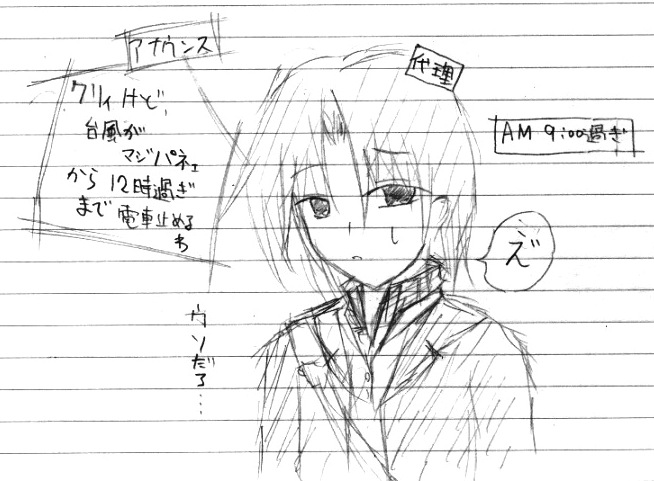 アナウンス
ワリィけど、
台風が
マジパネェ
から12時過ぎ
まで電車止める
わ
代理
AM 9:00過ぎ
え゛
ウソだろ…